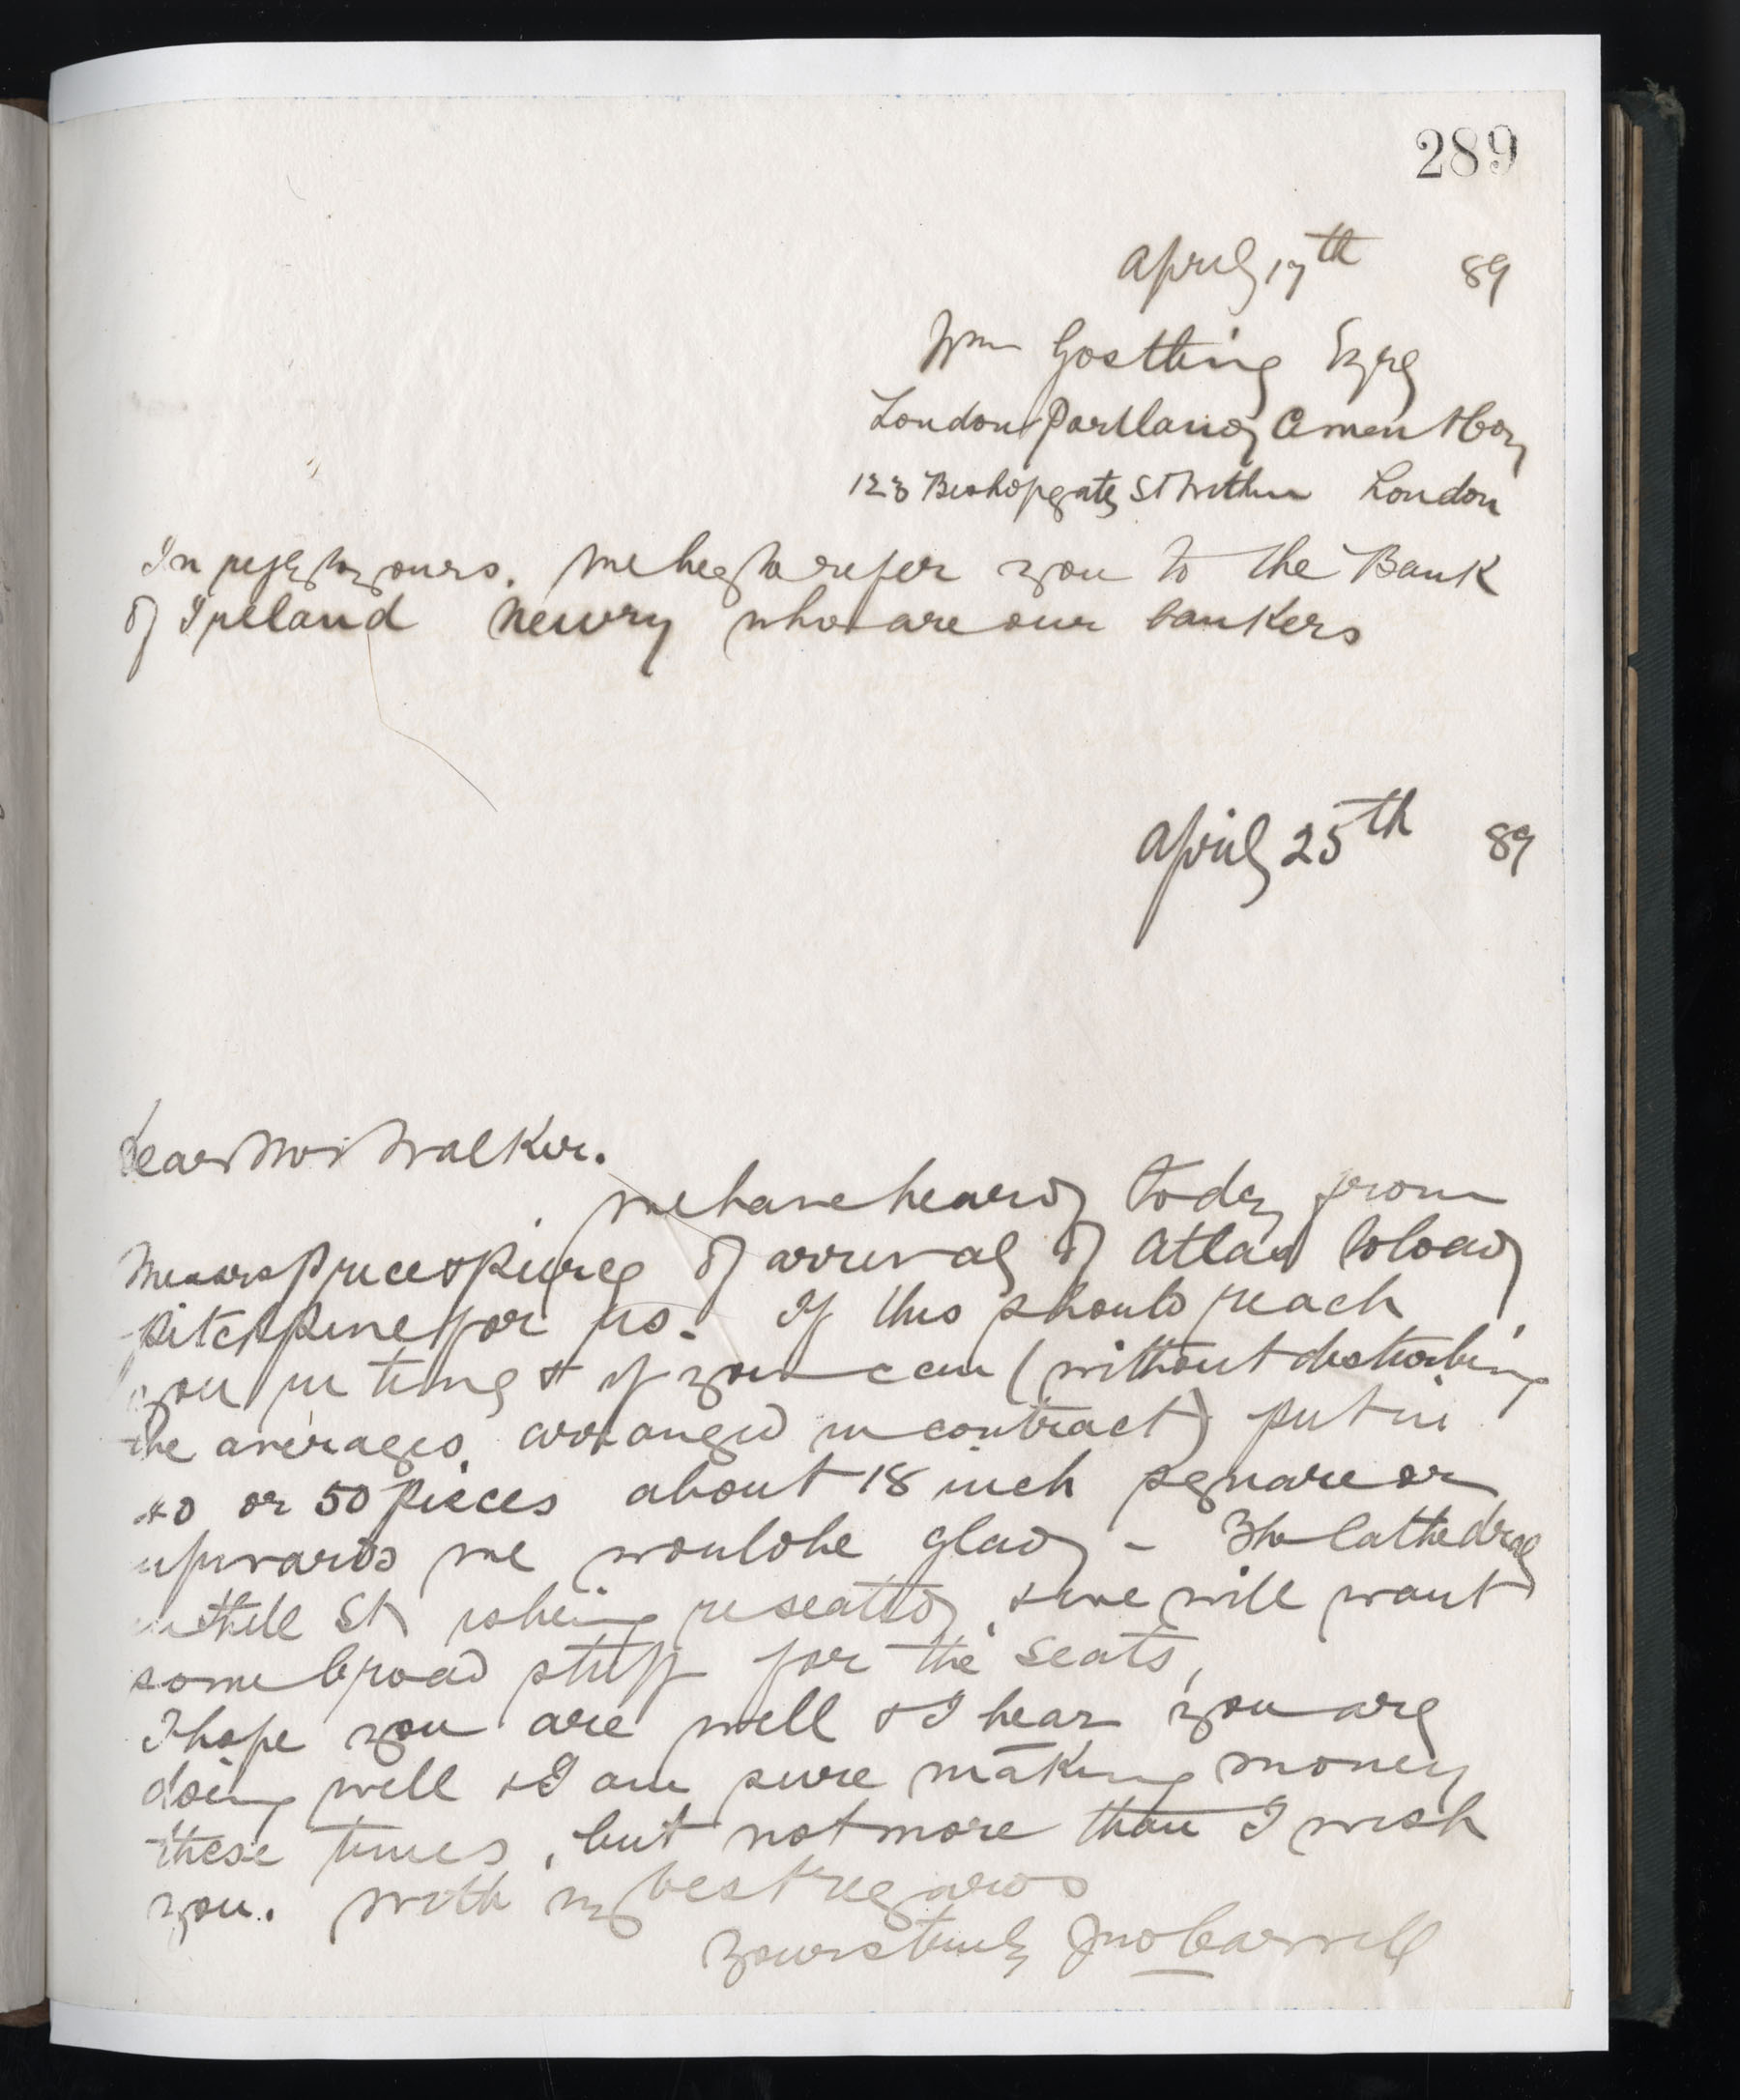 289
April 17th 89
Wm Gostling Esqre
London Portland Cement Coy
123 Bishopgate St Within London
In reply to yours. We beg to refer you to the Bank
of Ireland Newry who are our bankers
April 25th 89
Dear Mr Walker.
We have heard today from
Messrs Price & Pierce of arrival of Atlas to load
pitchpine for us. If this should reach
you in time & if you can (without disturbing
the averages arranged in contract) put in
40 or 50 pieces about 18 inch square or
upwards we would be glad - The Cathedral
in Hill St is being reseated, & we will want
some broad stuff for the seats,
I hope you are well & I hear you are
doing well & I am sure making money
these times, but not more than I wish
you. With my best regards
Yours truly Jno Carvill